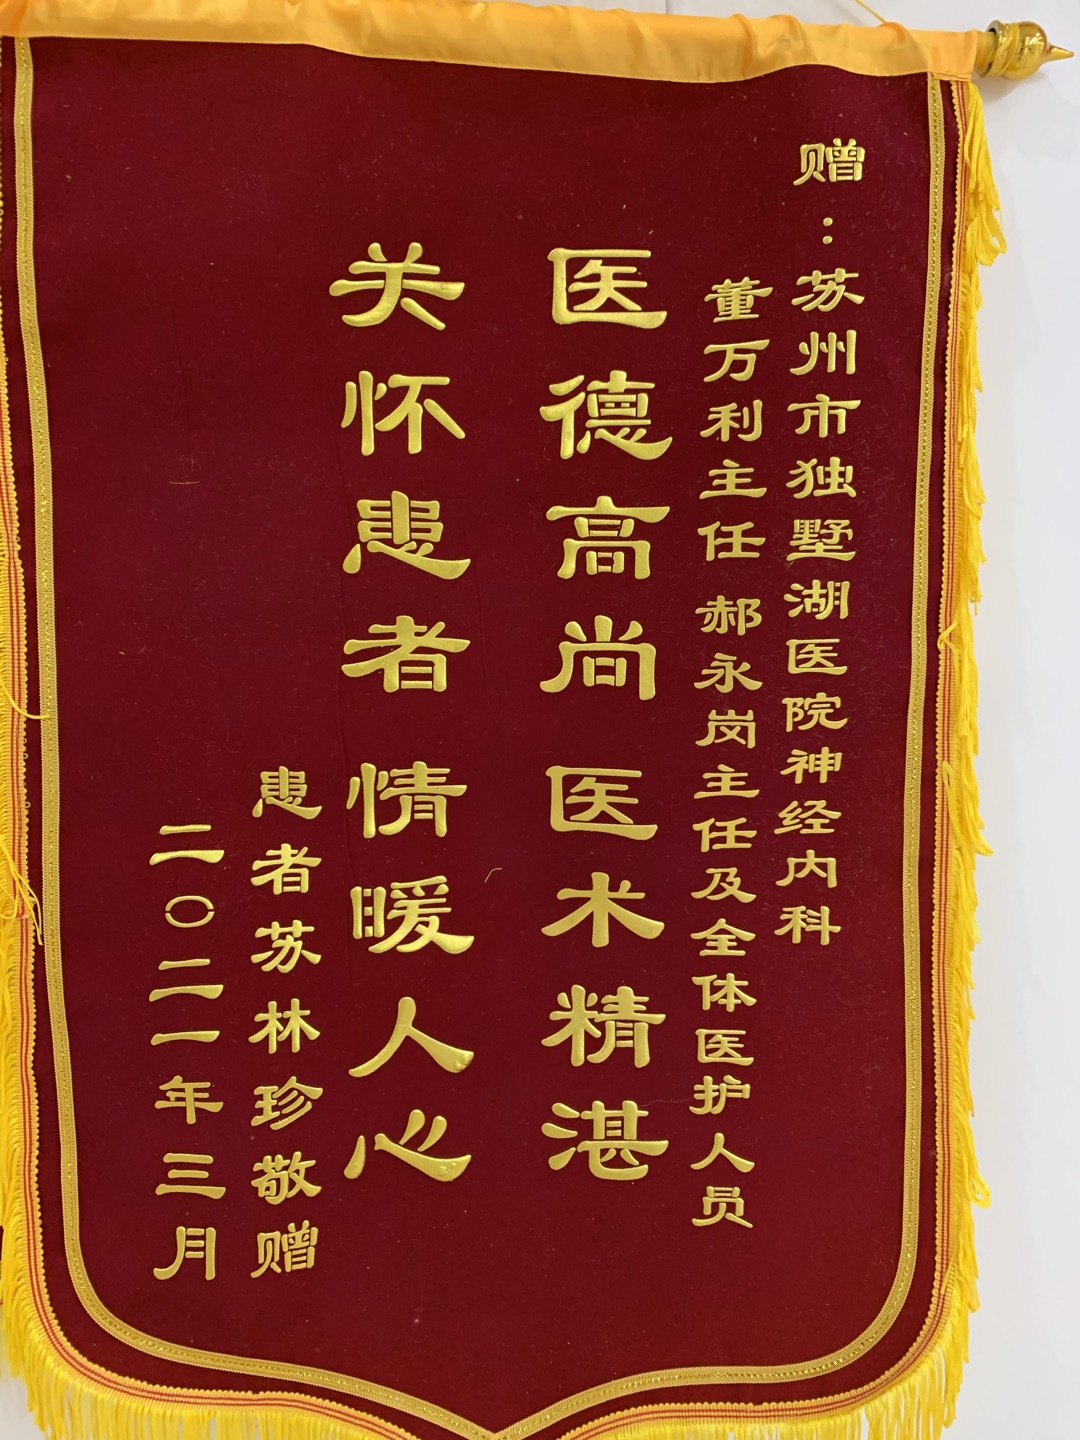 赠：苏州市独墅湖医院神经内科
董万利主任 郝永岗主任及全体医护人员
医德高尚 医术精湛
关怀患者 情暖人心
患者苏林珍敬赠
二〇二一年三月